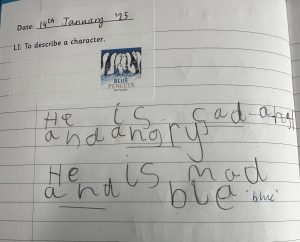 Date: 14th January '25
LI: To describe a character.
BLUE
PENGUIN
He is sad angry
and angry
He is mad
and ble 'blue'